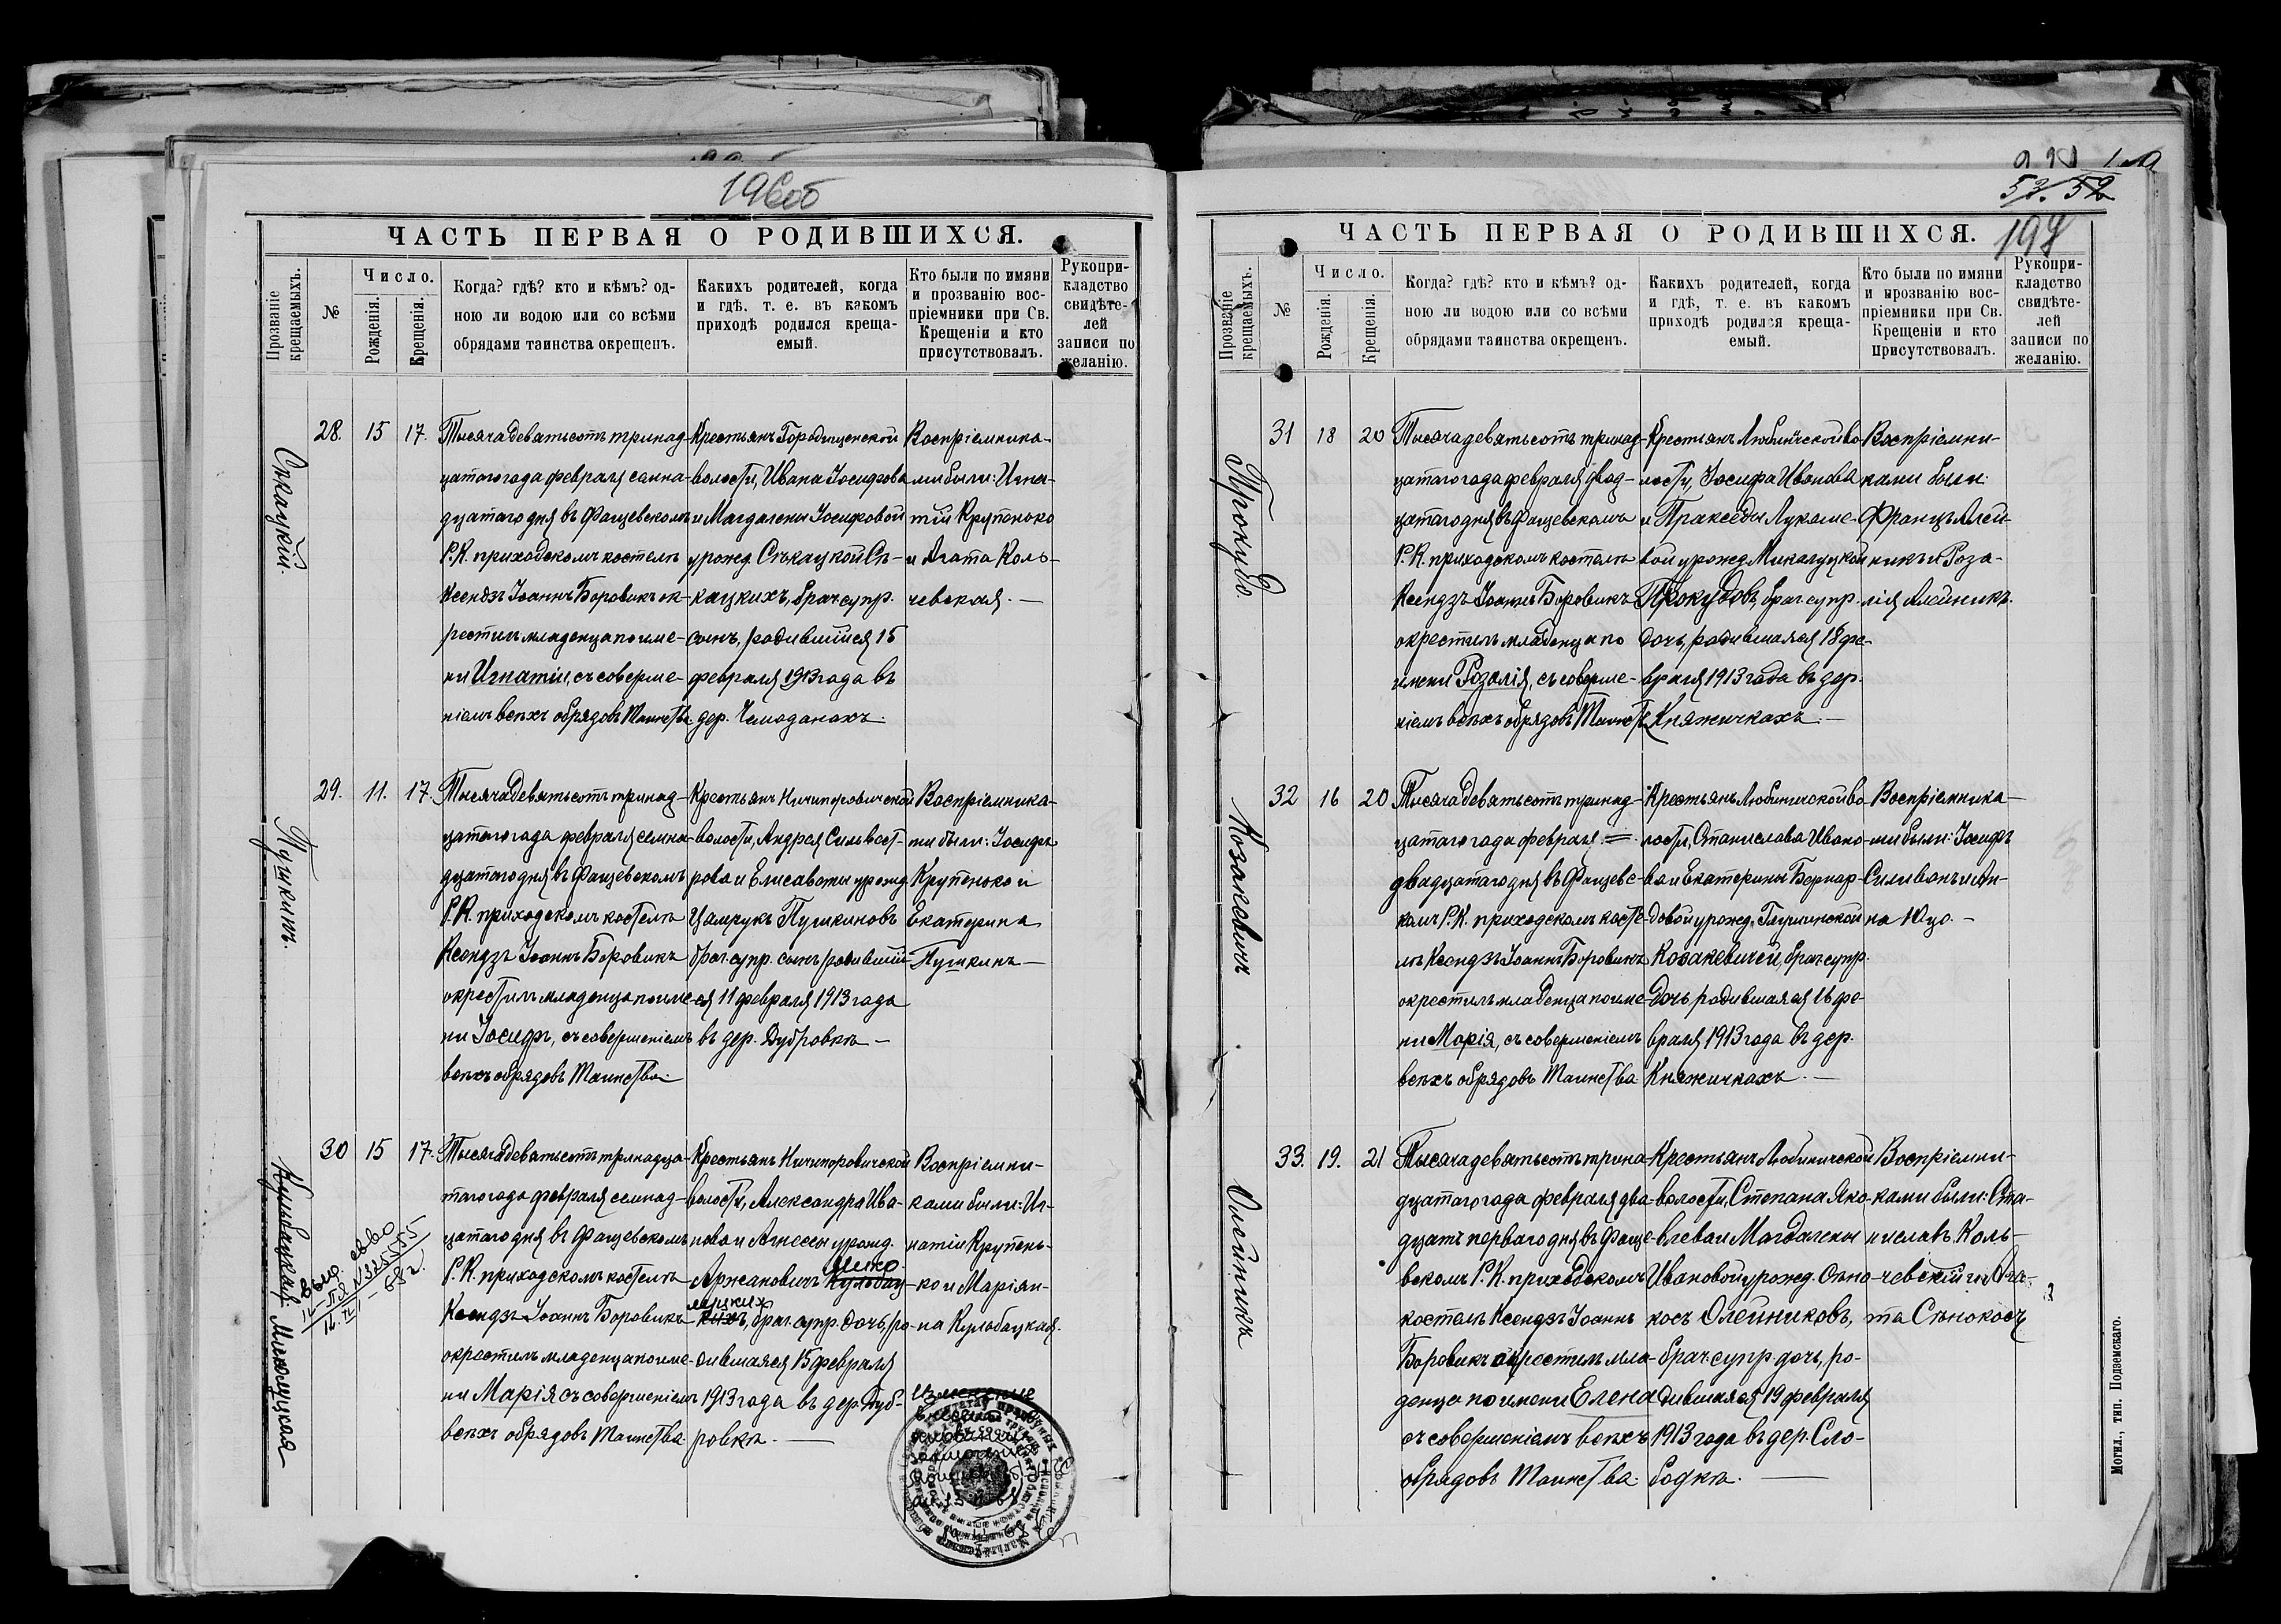 196об
ЧАСТЬ ПЕРВАЯ О РОДИВШИХСЯ.
Прозваніе крещаемыхъ.
№
Число.
Рожденія.
Крещенія.
Когда? гдѣ? кто и кѣмъ? од-
ною ли водою или со всѣми
обрядами таинства окрещенъ.
Какихъ родителей, когда
и гдѣ, т. е. въ какомъ
приходѣ родился креща-
емый.
Кто были по имяни
и прозванію вос-
пріемники при Св.
Крещеніи и кто
присутствовалъ.
Рукопри-
кладство
свидѣте-
лей
записи по
желанію.
28.
15
17.
Тысяча девятьсотъ тринад-
цатаго года февраля семна-
дцатаго дня въ Фащевскомъ
Р. К. приходскомъ костелѣ
Ксендзъ Іоаннъ Боровикъ ок-
рестилъ младенца по име-
ни Игнатій, съ соверше-
ніемъ всѣхъ обрядовъ Таинства
Крестьянъ Городищенской
волости, Ивана Іосифова
и Магдалены Іосифовой
урожд. Сѣкацкой Сѣ-
кацкихъ, брач. супр.
сынъ, родившійся 15
февраля 1913 года въ
дер. Чемоданахъ.
Воспріемника-
ми были: Игна-
тій Крупенько
и Агата Коль-
чевская. —
Пушкинъ.
29.
11.
17.
Тысяча девятьсотъ тринад-
цатаго года февраля семна-
дцатаго дня въ Фащевскомъ
Р. К. приходскомъ костелѣ
Ксендзъ Іоаннъ Боровикъ
окрестилъ младенца по име-
ни Іосифъ, съ совершеніемъ
всѣхъ обрядовъ Таинства.
Крестьянъ Ничипоровичской
волости, Андрея Сильвест-
рова и Елисаветы урожд.
Цамрукъ Пушкиновъ
брач. супр. сынъ родивший-
ся 11 февраля 1913 года
въ дер. Дубровкѣ —
Воспріемника-
ми были: Іосифъ
Крупенько и
Екатерина
Пушкинъ —
Кульбацкая. Миколуцкая
30
15
17.
Тысяча девятьсотъ тринадца-
таго года февраля семнад-
цатаго дня въ Фащевскомъ
Р. К. приходскомъ костелѣ
Ксендзъ Іоаннъ Боровикъ
окрестилъ младенца по име-
ни Марія съ совершеніемъ
всѣхъ обрядовъ Таинства.
Крестьянъ Ничипоровичской
волости, Александра Ива-
нова и Агнесы урожд.
Мико
Аржановичъ Кульбац-
луцких
кихъ, брач. супр. дочь, ро-
дившаяся 15 февраля
1913 года въ дер. Дуб-
ровкѣ. —
Воспріемни-
ками были: Иг-
натій Крупень-
ко и Маріян-
на Кульбацкая.
53. 52
197
ЧАСТЬ ПЕРВАЯ О РОДИВШИХСЯ.
Прозваніе крещаемыхъ.
№
Число.
Рожденія.
Крещенія.
Когда? гдѣ? кто и кѣмъ? од-
ною ли водою или со всѣми
обрядами таинства окрещенъ.
Какихъ родителей, когда
и гдѣ, т. е. въ какомъ
приходѣ родился креща-
емый.
Кто были по имяни
и прозванію вос-
пріемники при Св.
Крещеніи и кто
присутствовалъ.
Рукопри-
кладство
свидѣте-
лей
записи по
желанію.
31
18
20
Тысяча девятьсотъ тринад-
цатаго года февраля двад-
цатаго дня въ Фащевскомъ
Р. К. приходскомъ костелѣ
Ксендзъ Іоаннъ Боровикъ
окрестилъ младенца по
имени Розалія, съ соверше-
ніемъ всѣхъ обрядовъ Таинств.
Крестьянъ Любиничской во-
лости, Іосифа Иванова
и Пракседы Лукаше-
вой урожд. Микалуцкой
Прокудовъ, брач. супр.
дочь, родившаяся 18 фе-
враля 1913 года въ дер.
Княжичкахъ. —
Воспріемни-
ками были:
Францъ Алей-
никъ и Роза-
лія Алейникъ.
Козакевичъ
32
16
20
Тысяча девятьсотъ тринад-
цатаго года февраля =
двадцатаго дня въ Фащевс-
комъ Р. К. приходскомъ косте-
лѣ Ксендзъ Іоаннъ Боровикъ
окрестилъ младенца по име-
ни Марія, съ совершеніемъ
всѣхъ обрядовъ Таинства
Крестьянъ Любиничской во-
лости, Станислава Ивано-
ва и Екатерины Бернар-
довой урожд.
Козакевичей, брач. супр.
дочь родившаяся 16 фе-
враля 1913 года въ дер.
Княжичкахъ. —
Воспріемника-
ми были: Іосифъ
Силиванъ и Ан-
на Юцо. —
Олейникъ
33.
19.
21
Тысяча девятьсотъ трина-
дцатаго года февраля два-
дцать перваго дня въ Фаще-
вскомъ Р. К. приходскомъ
костелѣ Ксендзъ Іоаннъ
Боровикъ окрестилъ мла-
денца по имени Елена
съ совершеніемъ всѣхъ
обрядовъ Таинства.
Крестьянъ Любиничской
волости, Степана Яко-
влева и Магдалены
Ивановой урожд. Сѣно-
косъ Олейниковъ,
брач. супр. дочь, ро-
дившаяся 19 февраля
1913 года въ дер. Сло-
бодкѣ. —
Воспріемни-
ками были: Ста-
ниславъ Коль-
чевскій и Ага-
та Сѣнокосъ
Могил., тип. Подземскаго.